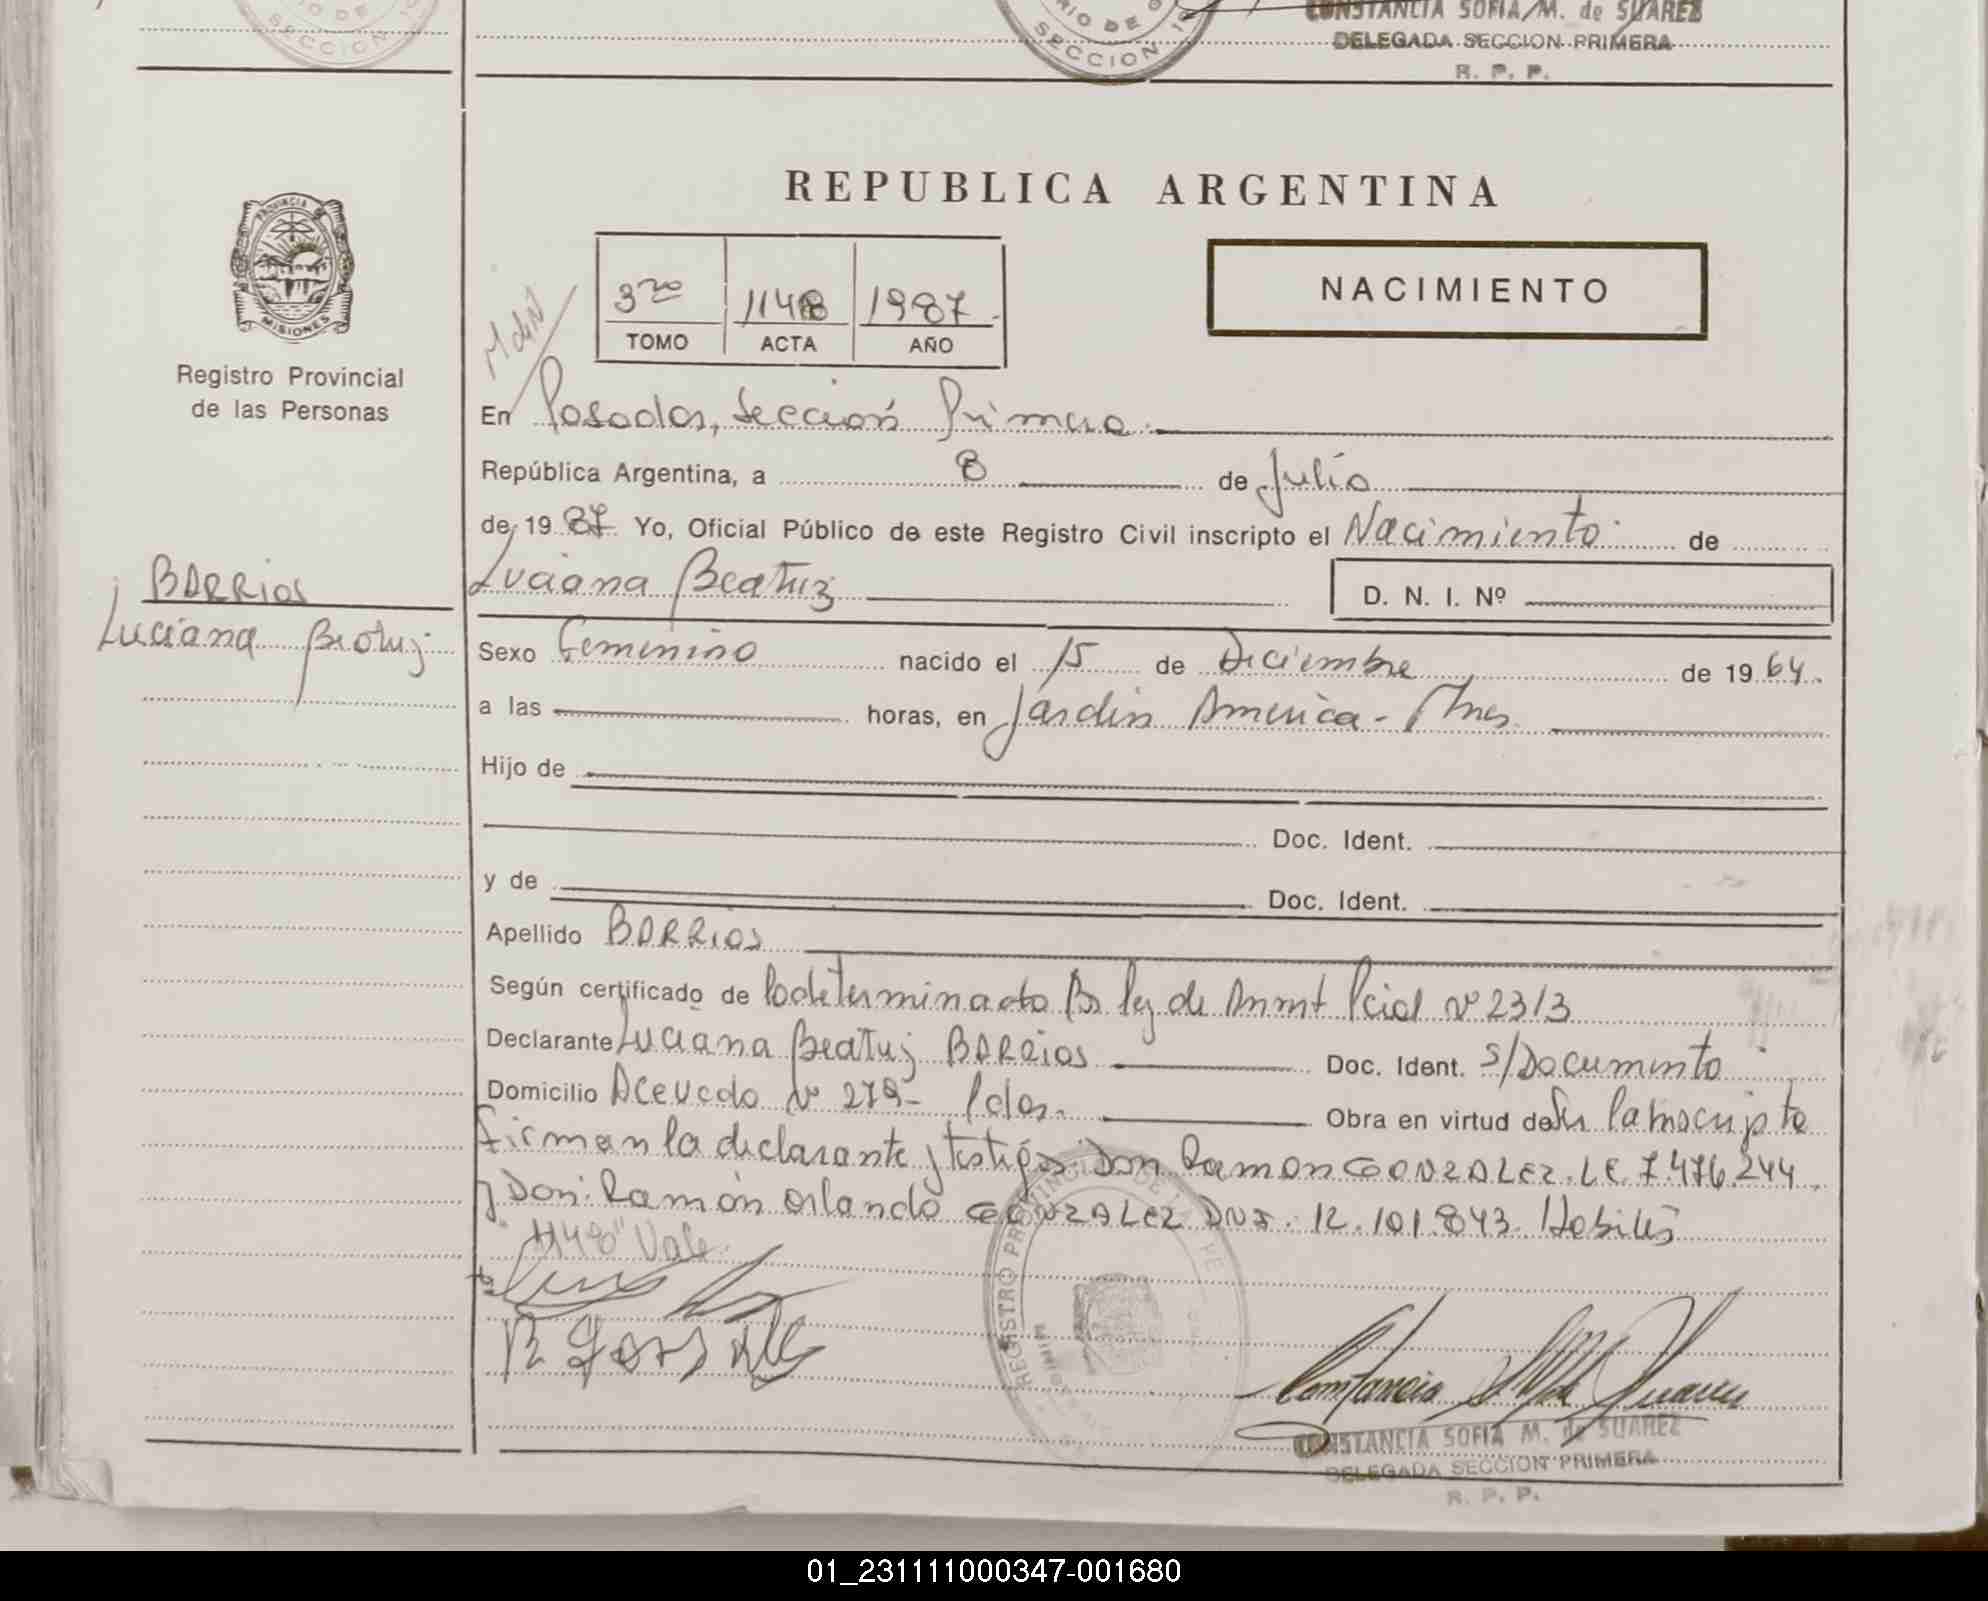 CONSTANCIA SOFIA M. de SUAREZ
SECCION 1
SECCION 1
DELEGADA SECCION PRIMERA
R. P. P.
REPUBLICA ARGENTINA
PROVINCIA DE
MISIONES
Registro Provincial
de las Personas
3ro 1148 1987
TOMO ACTA AÑO
NACIMIENTO
En Posadas, Sección Primera
República Argentina, a 8 de Julio
de 1987 Yo, Oficial Público de este Registro Civil inscripto el Nacimiento de
Luciana Beatriz D. N. I. Nº
BARRIOS
Luciana Beatriz
Sexo Femenino nacido el 15 de Diciembre de 1964
a las horas, en Jardin America - Mnes.
Hijo de
Doc. Ident.
y de Doc. Ident.
Apellido BARRIOS
Según certificado de lo determinado Ley de Amnt Pcial Nº 2313
Declarante Luciana Beatriz BARRIOS Doc. Ident. S/Documento
Domicilio Acevedo Nº 279 - Pdas. Obra en virtud de Su inscripto
firman la declarante y testigos: Don Ramon GONZALEZ. LE 7.476.244
y Don: Ramón Orlando GONZALEZ DNI. 12.101.843. Hábiles
"1148" Vale
R Gonzalez
REGISTRO PROVINCIAL DE LAS
Constancia S M de Suarez
CONSTANCIA SOFIA M. de SUAREZ
DELEGADA SECCION PRIMERA
R. P. P.
01_231111000347-001680